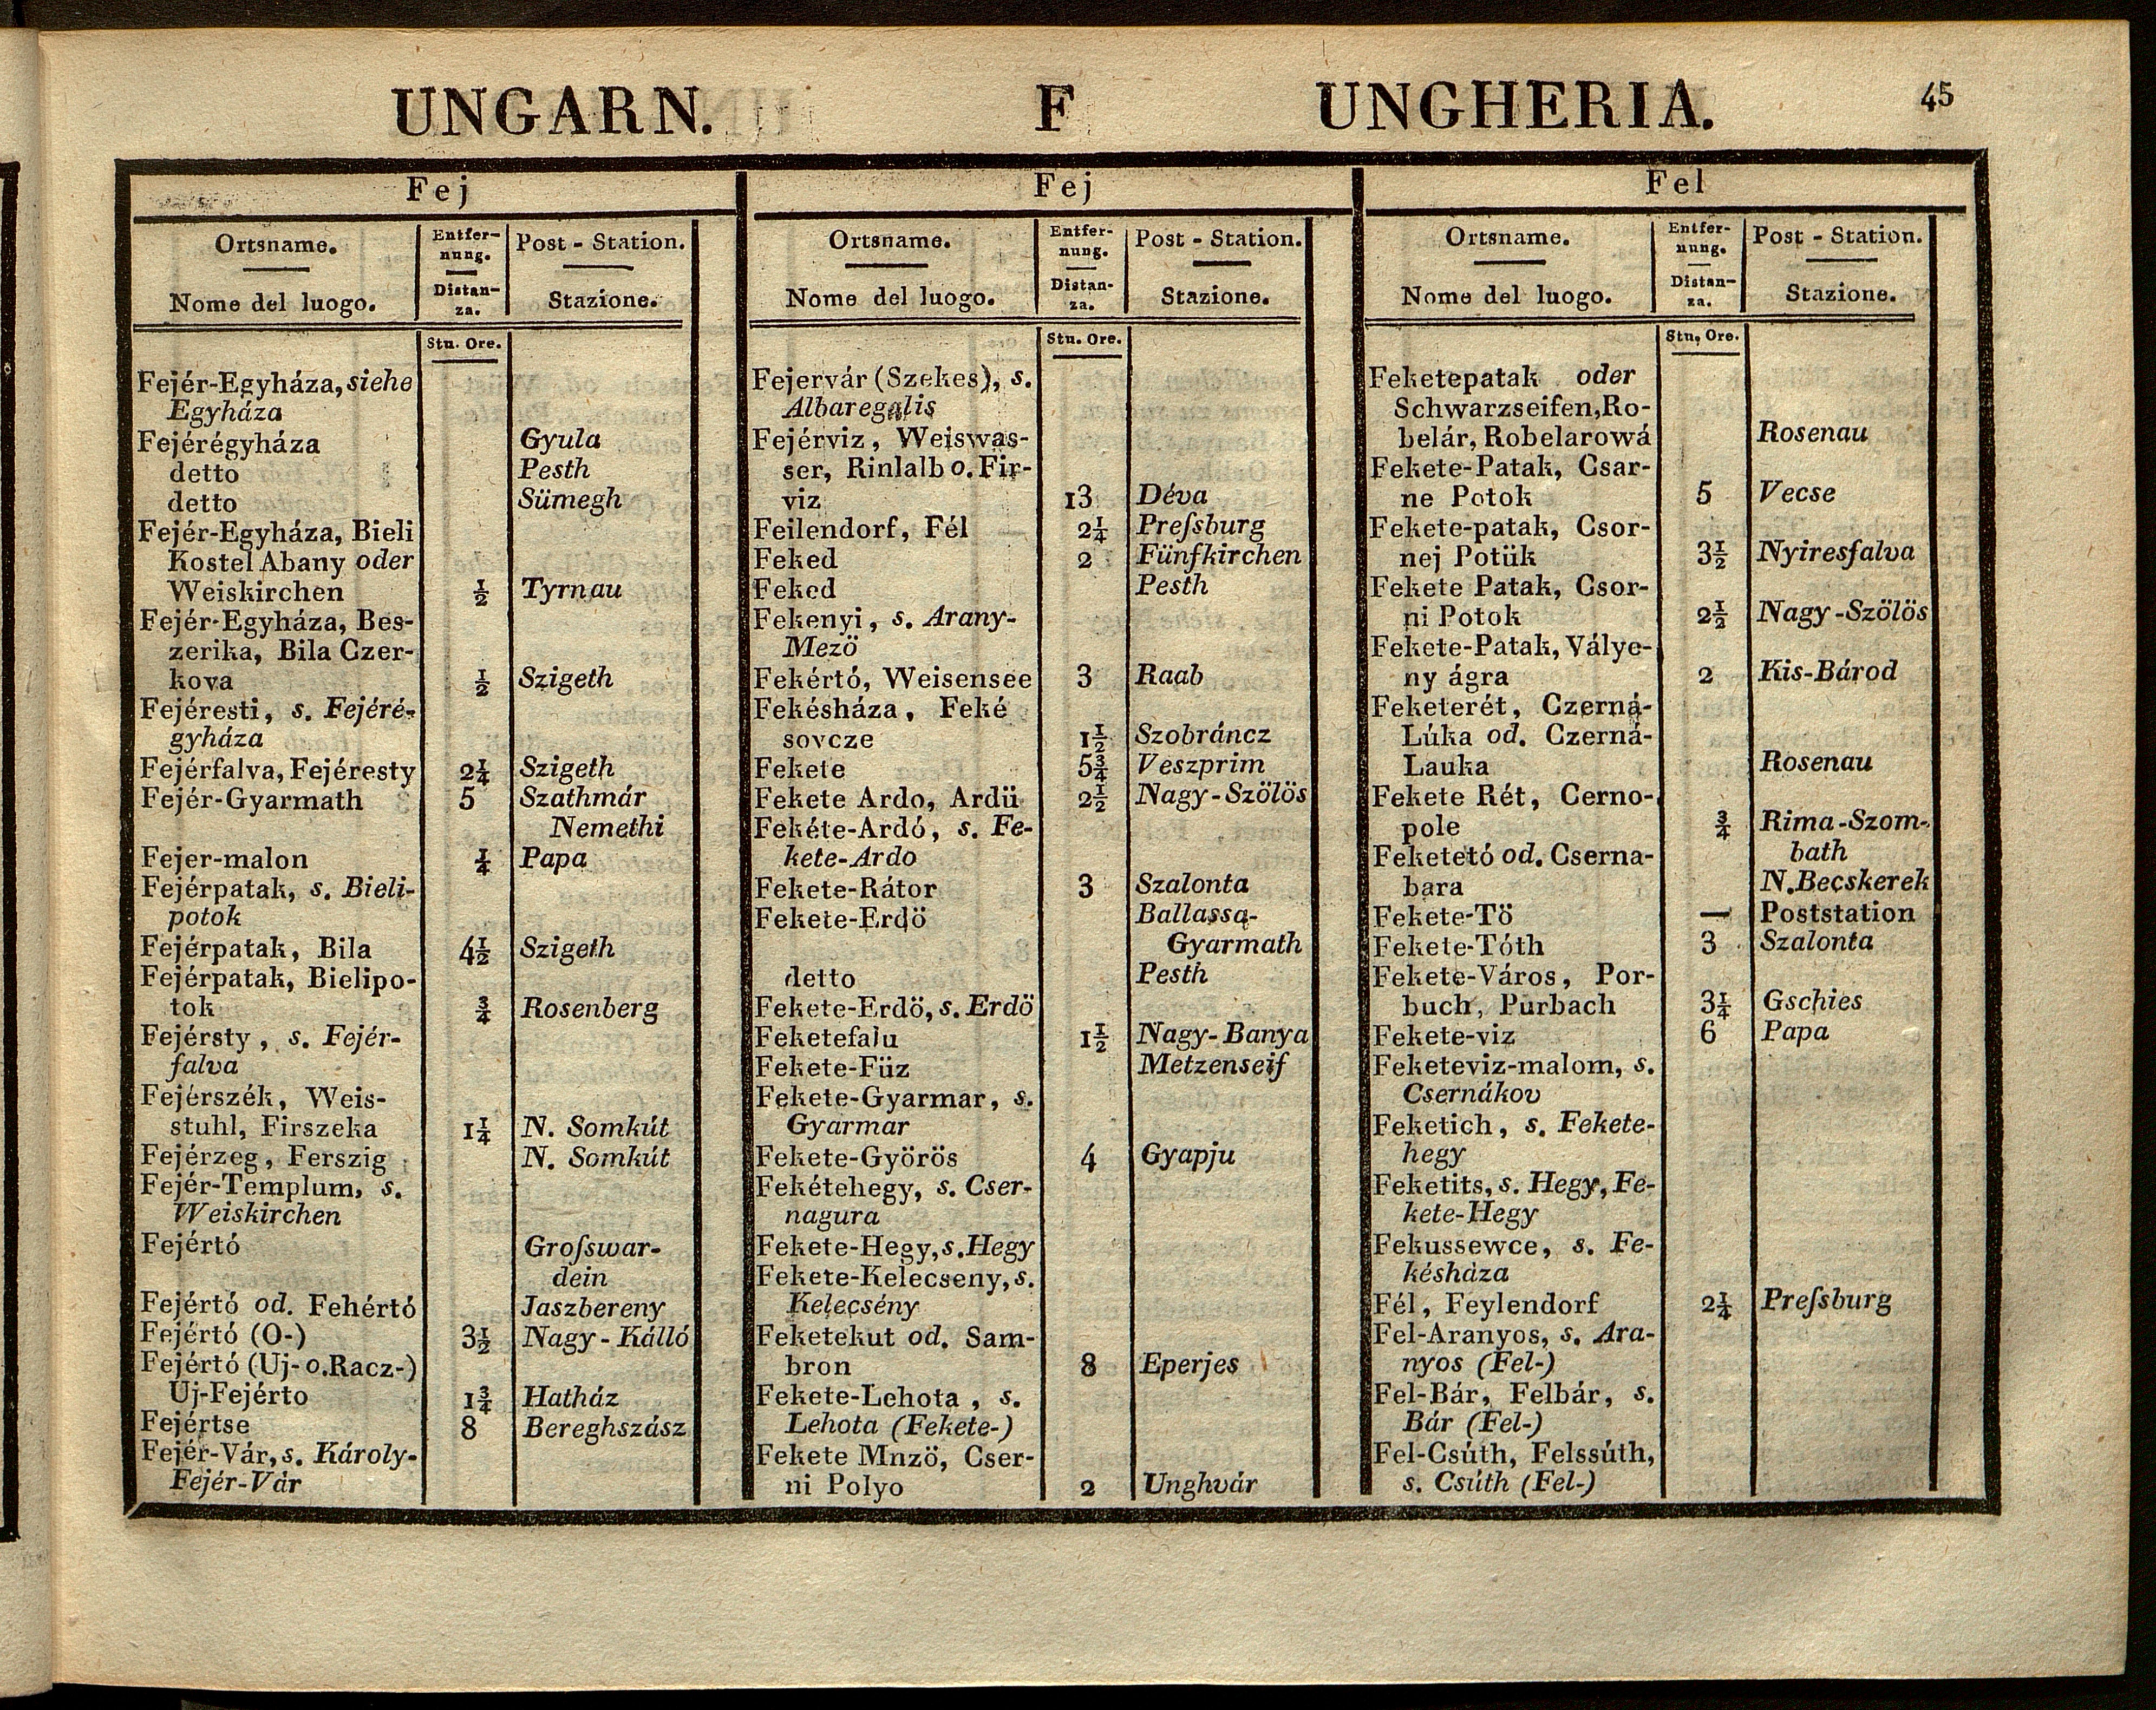 UNGARN. F UNGHERIA. 45
Fej
Ortsname. Entfer- Post - Station.
nung.
Nome del luogo. Distan- Stazione.
za.
Stu. Ore.
Fejér-Egyháza, siehe
Egyháza
Fejérégyháza Gyula
detto Pesth
detto Sümegh
Fejér-Egyháza, Bieli
Kostel Abany oder
Weiskirchen ½ Tyrnau
Fejér-Egyháza, Bes-
zerika, Bila Czer-
kova ½ Szigeth
Fejéresti, s. Fejéré-
gyháza
Fejérfalva, Fejéresty 2¼ Szigeth
Fejér-Gyarmath 5 Szathmár
Nemethi
Fejer-malon ¼ Papa
Fejérpatak, s. Bieli-
potok
Fejérpatak, Bila 4½ Szigeth
Fejérpatak, Bielipo-
tok ¾ Rosenberg
Fejérsty, s. Fejér-
falva
Fejérszék, Weis-
stuhl, Firszeka 1¼ N. Somkút
Fejérzeg, Ferszig N. Somkút
Fejér-Templum, s.
Weiskirchen
Fejértó Groſswar-
dein
Fejértó od. Fehértó Jaszbereny
Fejértó (O-) 3½ Nagy-Kálló
Fejértó (Uj- o. Racz-)
Uj-Fejérto 1¾ Hatház
Fejértse 8 Bereghszász
Fejér-Vár, s. Károly-
Fejér-Vár
Fej
Ortsname. Entfer- Post - Station.
nung.
Nome del luogo. Distan- Stazione.
za.
Stu. Ore.
Fejervár (Szekes), s.
Albaregalis
Fejérviz, Weiswas-
ser, Rinlalb o. Fir-
viz 13 Déva
Feilendorf, Fél 2¼ Preſsburg
Feked 2 Fünfkirchen
Feked Pesth
Fekenyi, s. Arany-
Mezö
Fekértó, Weisensee 3 Raab
Fekésháza, Feké
sovcze 1½ Szobráncz
Fekete 5¾ Veszprim
Fekete Ardo, Ardü 2½ Nagy-Szölös
Fekéte-Ardó, s. Fe-
kete-Ardo
Fekete-Rátor 3 Szalonta
Fekete-Erdö Ballassa-
Gyarmath
detto Pesth
Fekete-Erdö, s. Erdö
Feketefalu 1½ Nagy-Banya
Fekete-Füz Metzenseif
Fekete-Gyarmar, s.
Gyarmar
Fekete-Györös 4 Gyapju
Fekétehegy, s. Cser-
nagura
Fekete-Hegy, s. Hegy
Fekete-Kelecseny, s.
Kelecsény
Feketekut od. Sam-
bron 8 Eperjes
Fekete-Lehota, s.
Lehota (Fekete-)
Fekete Mnzö, Cser-
ni Polyo 2 Unghvár
Fel
Ortsname. Entfer- Post - Station.
nung.
Nome del luogo. Distan- Stazione.
za.
Stu, Ore.
Feketepatak oder
Schwarzseifen, Ro-
belár, Robelarowá Rosenau
Fekete-Patak, Csar-
ne Potok 5 Vecse
Fekete-patak, Csor-
nej Potük 3½ Nyiresfalva
Fekete Patak, Csor-
ni Potok 2½ Nagy-Szölös
Fekete-Patak, Válye-
ny ágra 2 Kis-Bárod
Feketerét, Czerná-
Lúka od. Czerná-
Lauka Rosenau
Fekete Rét, Cerno-
pole ¾ Rima-Szom-
bath
Feketetó od. Cserna-
bara N. Becskerek
Fekete-Tö — Poststation
Fekete-Tóth 3 Szalonta
Fekete-Város, Por-
buch, Purbach 3¼ Gschies
Fekete-viz 6 Papa
Feketeviz-malom, s.
Csernákov
Feketich, s. Fekete-
hegy
Feketits, s. Hegy, Fe-
kete-Hegy
Fekussewce, s. Fe-
késháza
Fél, Feylendorf 2¼ Preſsburg
Fel-Aranyos, s. Ara-
nyos (Fel-)
Fel-Bár, Felbár, s.
Bár (Fel-)
Fel-Csúth, Felssúth,
s. Csúth (Fel-)